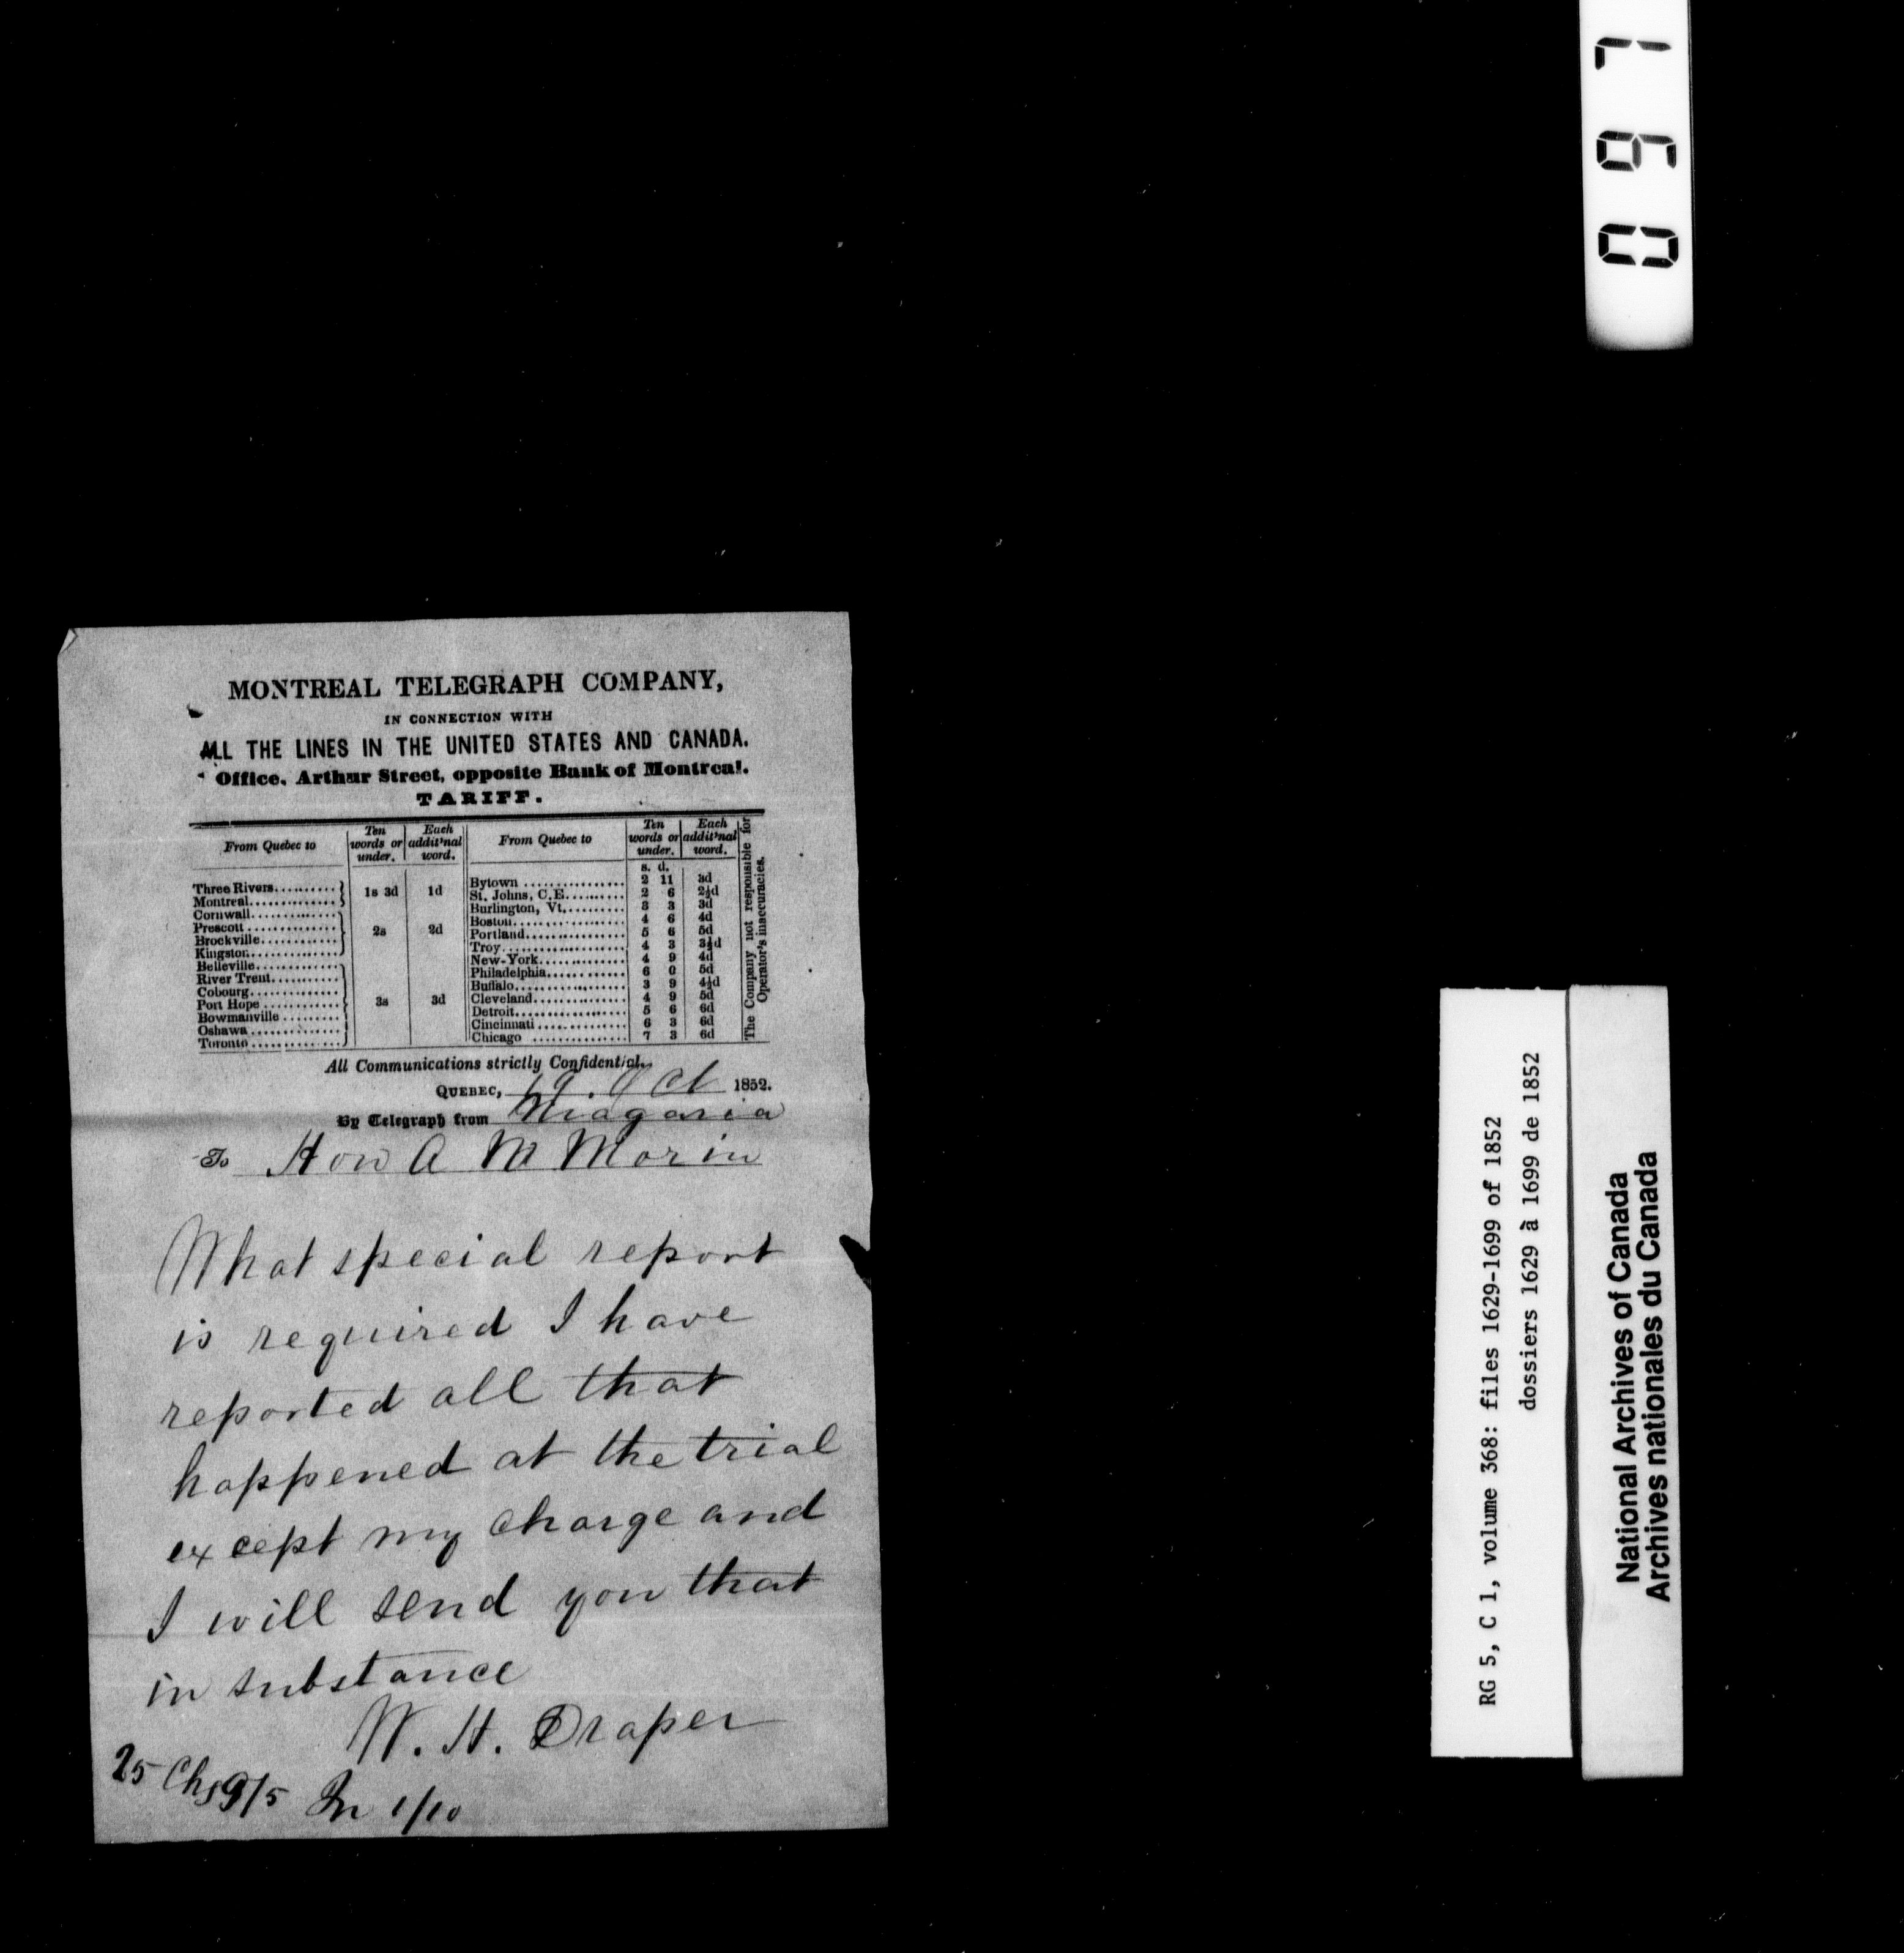 MONTREAL TELEGRAPH COMPANY,
IN CONNECTION WITH
ALL THE LINES IN THE UNITED STATES AND CANADA.
Office, Arthur Street, opposite Bank of Montreal.
TARIFF.
From Quebec to | Ten words or under. | Each addit'nal word. | From Quebec to | Ten words or under. | Each addit'nal word.
s. d.
Three Rivers..........
Montreal..............
1s 3d 1d
Cornwall..............
Prescott..............
Brockville............
Kingston..............
2s 2d
Belleville.............
River Trent...........
Cobourg..............
Port Hope............
Bowmanville.........
Oshawa..............
Toronto..............
3s 3d
Bytown ................ 2 11 3d
St. Johns, C.E.......... 2 6 2½d
Burlington, Vt.......... 3 3 3d
Boston.................. 4 6 4d
Portland................ 5 6 5d
Troy.................... 4 3 3½d
New-York.............. 4 9 4d
Philadelphia............ 6 0 5d
Buffalo................. 3 9 4½d
Cleveland.............. 4 9 5d
Detroit................. 5 6 6d
Cincinnati.............. 6 3 6d
Chicago ............... 7 3 6d
The Company not responsible for
Operator's inaccuracies.
All Communications strictly Confidential.
QUEBEC, 19. Oct 1852.
By Telegraph from Niagaria
To Hon A M Morin
What special report
is required I have
reported all that
happened at the trial
except my charge and
I will send you that
in substance
W. H. Draper
25 Chs 9/5 In 1/10
0 6 7
RG 5, C 1, volume 368: files 1629-1699 of 1852
dossiers 1629 à 1699 de 1852
National Archives of Canada
Archives nationales du Canada